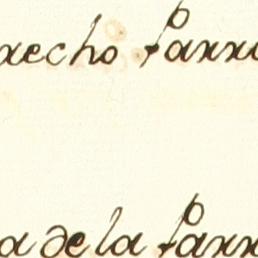 recho Parro
a de la Parr